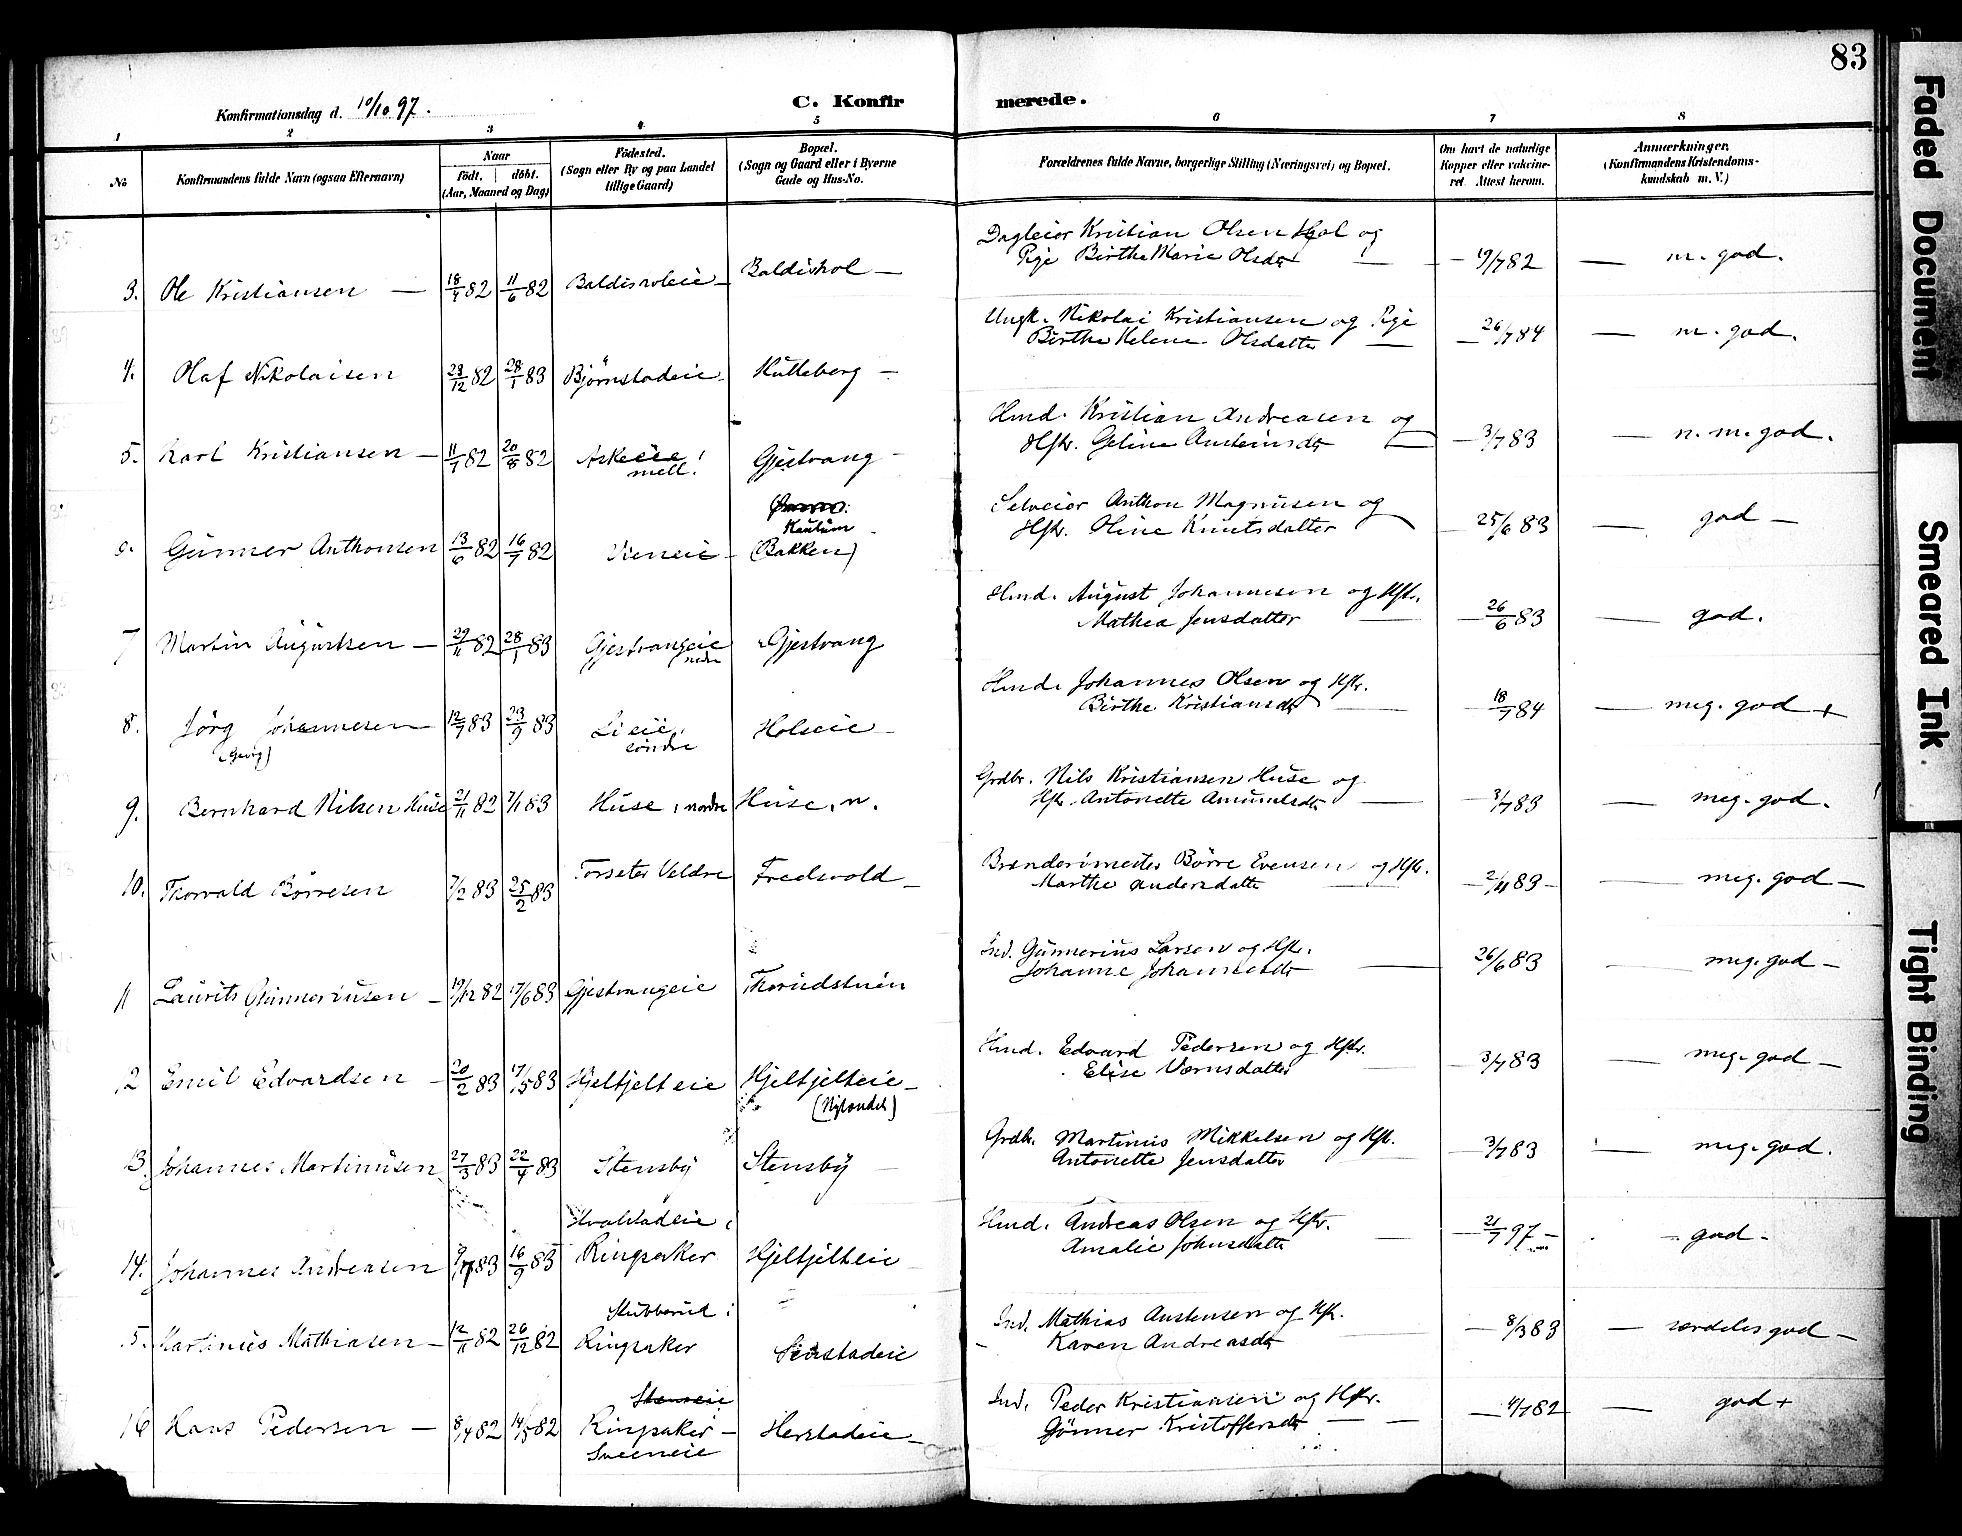 83
Konfirmationsdag d. 10/10 97.
C. Konfirmerede.
1 2 3 4 5 6 7 8
No
Konfirmandens fulde Navn (ogsaa Efternavn)
Naar
født. døbt.
(Aar, Maaned og Dag)
Fødested.
(Sogn eller By og paa Landet
tillige Gaard)
Bopæl.
(Sogn og Gaard eller i Byerne
Gade og Hus-No.
Forældrenes fulde Navne, borgerlige Stilling (Næringsvei) og Bopæl.
Om havt de naturlige
Kopper eller vakcine-
ret. Attest herom.
Anmærkninger.
(Konfirmandens Kristendoms-
kundskab m. V.)
3. Ole Kristiansen — 18/4 82 11/6 82 Baldishol — Dagleier Kristian Olsen Hol og
Pige Birthe Marie Olsdtr — 19/7 82 — m. god.
4. Olaf Nikolaisen 23/12 82 28/1 83 Bjørnstadeie Hulleberg — Ungk. Nikolai Kristiansen og Pige
Birthe Helene Olsdatter — 26/7 84 — m. god.
5. Karl Kristiansen — 11/7 82 20/8 82 Askeeie mell. Gjestvang Hmd. Kristian Andreasen og
Hstr. Geline Austeinsdtr — 3/7 83 — n. m. god.
Gunner Anthonsen 13/6 82 16/7 82 Vieneie (Bakken) Selveier Anthon Magnusen og
Hstr. Oline Knutsdatter 25/6 83 — god —
7 Martin Augustsen — 29/11 82 28/1 83 Gjestvangeie nedre Gjestvang Hmd. August Johannesen og Hstr.
Mathea Jensdatter — 26/6 83 — god.
8. Jørg Johannesen — 12/7 83 23/9 83 Lieie, søndre Holseie — Hmd. Johannes Olsen og Hstr.
(Georg) Birthe Kristiansdtr — 18/7 84 — meg. god +
9. Bernhard Nilsen Huse 21/11 82 7/1 83 Huse, nordre Huse, n. Grdbr. Nils Kristiansen Huse og
Hstr. Antonette Amundsdtr — 3/7 83 — meg. god.
10. Thorvald Børresen 7/2 83 25/2 83 Torseter Veldre Fredsvold — Brænderimester Børre Evensen og Hstr.
Marthe Andersdatter — 2/11 83 — meg. god —
11 Laurits Gunneriusen — 19/12 82 17/6 83 Gjestvangeie Thorudstuen Ind. Gunnerius Larsen og Hstr.
Johanne Johannesdtr — 26/6 83 — meg. god —
12 Emil Edvardsen — 20/2 83 17/5 83 Hjeltjelteie Hjeltjelteie — Hmd. Edvard Pedersen og Hstr.
(Nylandet) Elise Værnsdatter — 3/7 83 — meg. god —
13. Johannes Martinusen 27/3 83 22/4 83 Stensby Stensby — Grdbr. Martinus Mikkelsen og Hstr.
Antonette Jensdatter — 3/7 83 — meg. god.
14. Johannes Andreasen 83 16/9 83 Ringsaker Hjeltjelteie Hmd. Andreas Olsen og Hstr.
Amalie Johnsdatter — 21/7 97 — god —
15. Martinus Mathiasen — 12/11 82 26/12 82 Stubberud i
Ringsaker Ind. Mathias Austensen og Hstr.
Karen Andreasdtr — 8/3 83 — særdeles god —
16 Hans Pedersen — 8/4 82 14/5 82 Stenseie
Ringsaker —
Sveeneie Herstadeie — Ind. Peder Kristiansen og Hstr.
Gønner Kristoffersdtr — 4/7 82 — god +
Faded Document
Smeared Ink.
Tight Binding